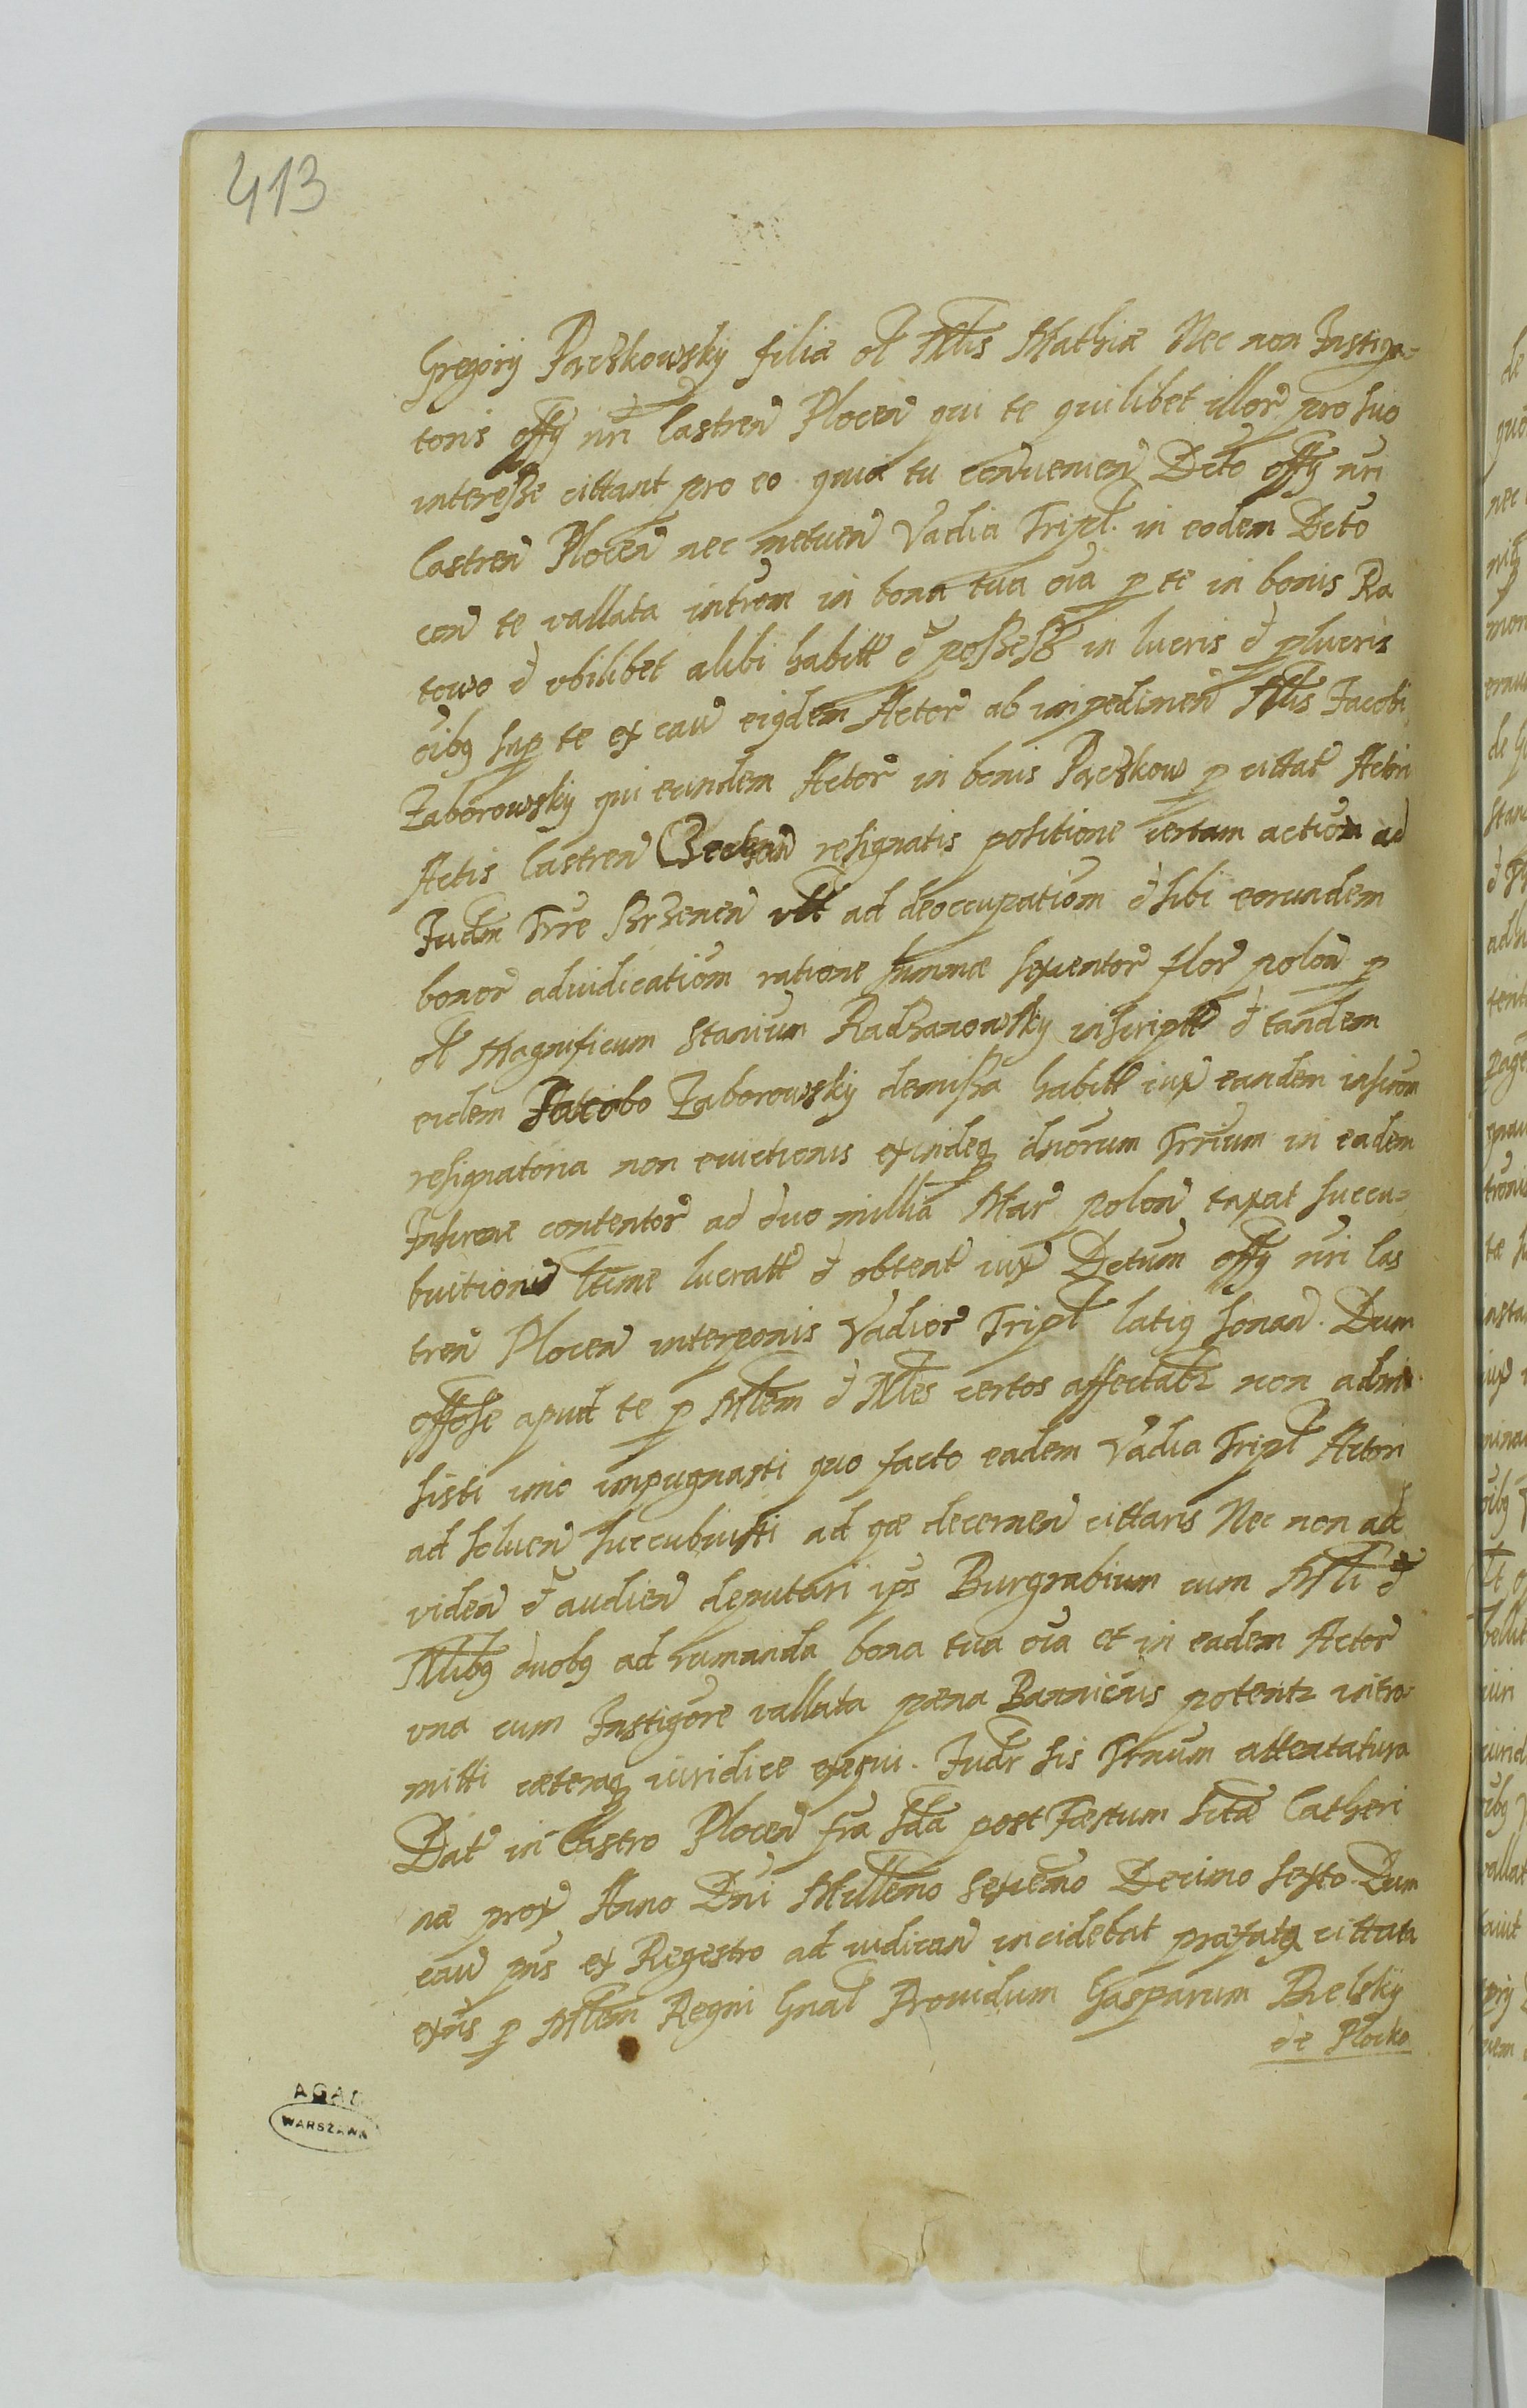 413
Gregorÿ Paczkowskÿ filiæ ol Nlis Mathiæ Nec non Instiga-
toris offÿ nri Castreñ Ploceñ qui te quilibet illor pro suo
interesse cittant pro eo quia tu convenieñ Dcto offÿ nri
Castreñ Ploceñ nec metueñ Vadia Tripl. in eodem Dcto
con te vallata intrõm in bona tua oĩa p te in bonis Ra
towo et ubilibet alibi habitt et possess in lucris et plucris
oĩbq sup te ex cau eiqdem Actor ab impedimeñ Nlis Jacobi
Zaborowskÿ qui eundem Actor in bonis Paczkow p cittat Actori
Actis Castreñ resignatis positione certam actiõm ad
Judm Trre ad deoccupatiõm et sibi eorundem
bonor adiudicatiõm ratione summæ sexcentor flor poloñ p
ol Magnificum Stanium Radzanowskÿ inscriptt et tandem
eidem Jacobo Zaborowskÿ demissa habitt iux eandem inscrõm
resignatoria non evictionis exindeq duorum Trrium in eadem
Inscrõne contentor ad duo millia Mar poloñ taxat succu-
buitionis ltime lucratt et obtent iux Dctum offÿ nri Cas
treñ Ploceñ interponis Vadior Tripl latiq sonan. Dum
offose apud te p Mlem et Nles certos affectatr non admi
sisti imo impugnasti quo facto eadem Vadia Tripl Actori
ad solueñ succubuisti ad quæ decerneñ cittaris Nec non ad
videñ et audieñ deputari ips Burgrabium cum Mli et
Nlibq duobq ad rumanda bona tua oĩa et in eadem Actor
una cum Instigore vallata pæna Bannicñis potentr intro-
mitti cæteraq iuridice exequi. Judr sis Trnum attentatura
Dat in Castro Ploceñ fra Sda post Fæstum Sctæ Catheri
næ prox Anno Dni Millemo Sexcemo Decimo Sexto. Dum
cau pns ex Regestro ad iudican incidebat præfatq cittata
exñs p Mlem Regni Gnal Providum Gasparum Bielskÿ
de Plocko
AGAD
WARSZAWA